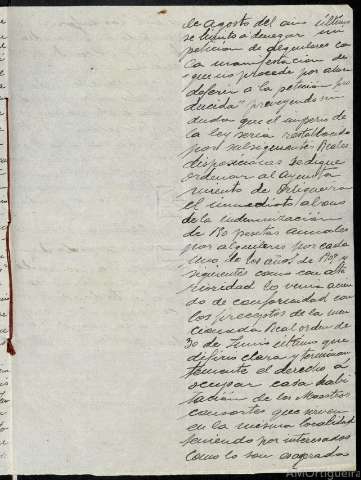 de Agosto del año último
se limitó a denegar mi
petición de alquileres con
la manifestación de
"que no procede por ahora
deferir a la petición pro
ducida" proveyendo sin
duda que el imperio de
la ley sería restablecido
por subsiguientes Reales
disposiciones se digne
ordenar al Ayunta
miento de Ortigueira
el inmediato abono
de la indemnización
de 150 pesetas anuales
por alquileres por cada
uno de los años de
siguientes como con ante
rioridad lo venía acien
do de conformidad con
los preceptos de la men
cionada Real orden de
30 de Junio último que
difinió clara y terminan
temente el derecho á
ocupar casa habi
tación de los Maestros
consortes que sirven
en la misma localidad
teniendo por interesados
como lo son
AMOrtigueira